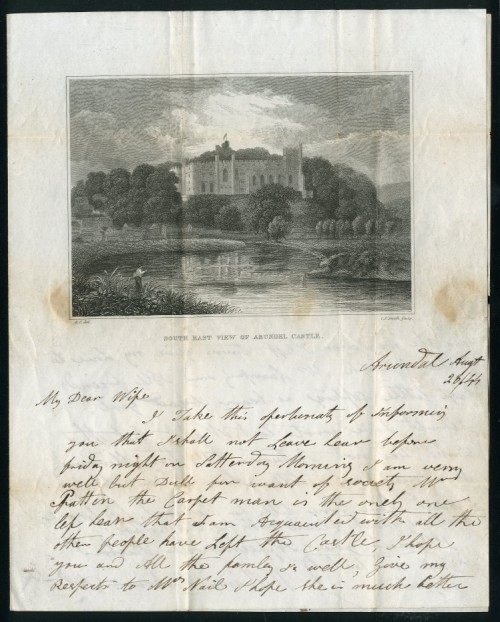 SOUTH EAST VIEW OF ARUNDEL CASTLE.
Arundal Augt
26/44
My Dear Wife
I Take this opertunaty of Informing
you that I shall not Leave hear before
friday night or Satterday Morning I am verry
well but Dull for want of society Mr
Pattin the Carpet man is the onely one
left hear that I am Acquainted with all the
other people have Left the Castle, I hope
you and All the famley is well, Give my
Respects to Mrs Nail I hope she is much better